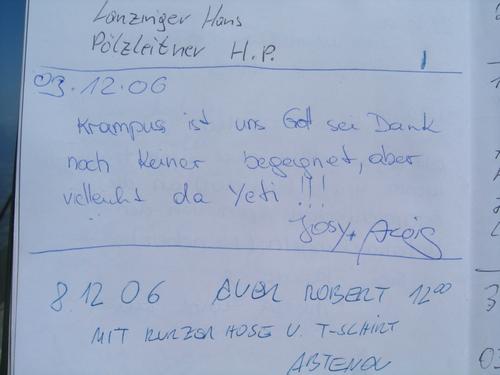 Lanzinger Hans
Pölzleitner H.P.
03.12.06
Krampuss ist uns Gott sei Dank
noch keiner begegnet, aber
vielleicht da Yeti !!!
Josy +
8.12 06 AUER ROBERT 12⁰⁰
MIT KURZER HOSE U. T-SCHIRT